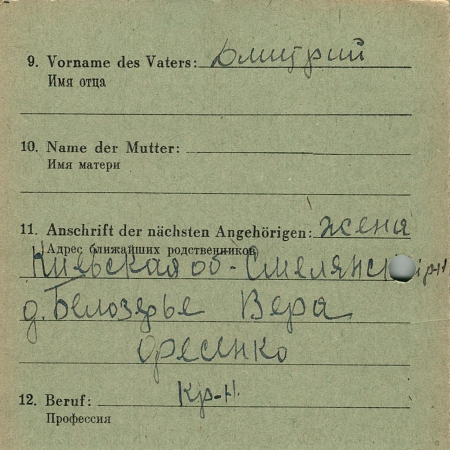 9. Vorname des Vaters: Дмитрий
Имя отца
10. Name der Mutter:
Имя матери
11. Anschrift der nächsten Angehörigen: жена
Адрес ближайших родственников
Киевская об- Смелянск р-н
д. Белозерье Вера
12. Beruf: кр-н.
Профессия